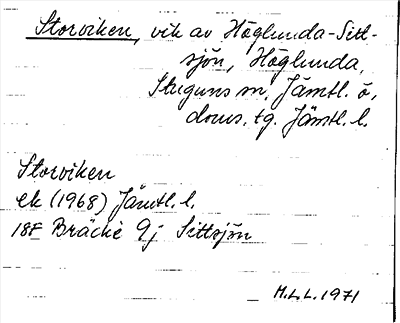 Storviken, vik av Höglunda-Sitt-
sjön, Höglunda,
Stuguns sn, Jämtl. ö.
doms. tg. Jämtl. l.
Storviken
ek (1968) Jämtl. l.
18F Bräcke 9j Sittsjön
M.L.L. 1971